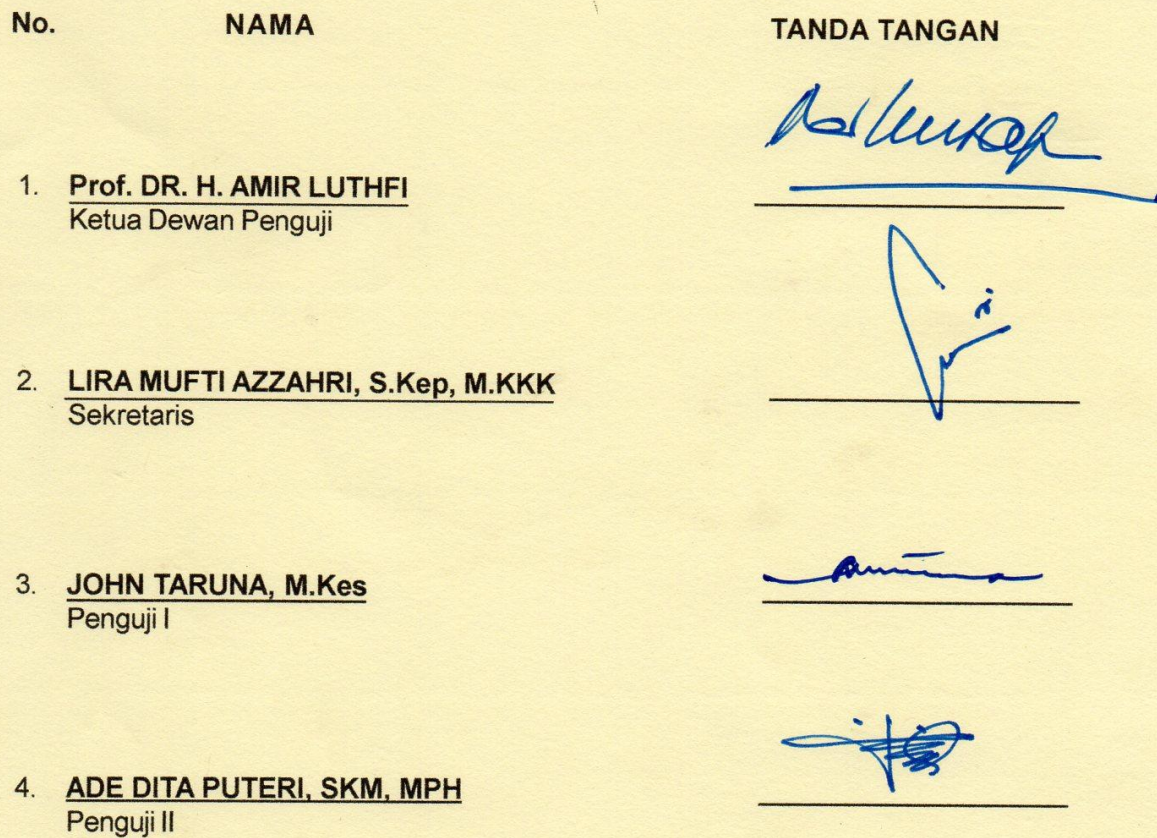 No. NAMA TANDA TANGAN
1. Prof. DR. H. AMIR LUTHFI
Ketua Dewan Penguji
2. LIRA MUFTI AZZAHRI, S.Kep, M.KKK
Sekretaris
3. JOHN TARUNA, M.Kes
Penguji I
4. ADE DITA PUTERI, SKM, MPH
Penguji II